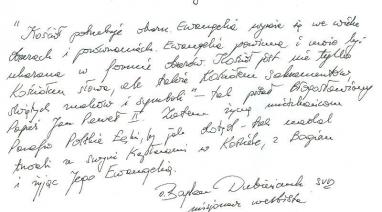 "Kościół potrzebuje obrazu. Ewangelia wyraża się we wielu
obrazach i porównaniach. Ewangelia powinna i może być
ukazana w formie obrazów. Kościół jest nie tylko
Kościołem słowa, ale także Kościołem sakramentów
świętych znaków i symboli" – tak pisał Błogosławiony
Papież Jan Paweł II. Zatem życzę mieszkańcom
Parafii Polskie Łąki, by jak dotąd – tak nadal
trwali z swymi Kapłanami w Kościele, z Bogiem
i żyjąc Jego Ewangelią.
o. Bogdan SVD
misjonarz werbista